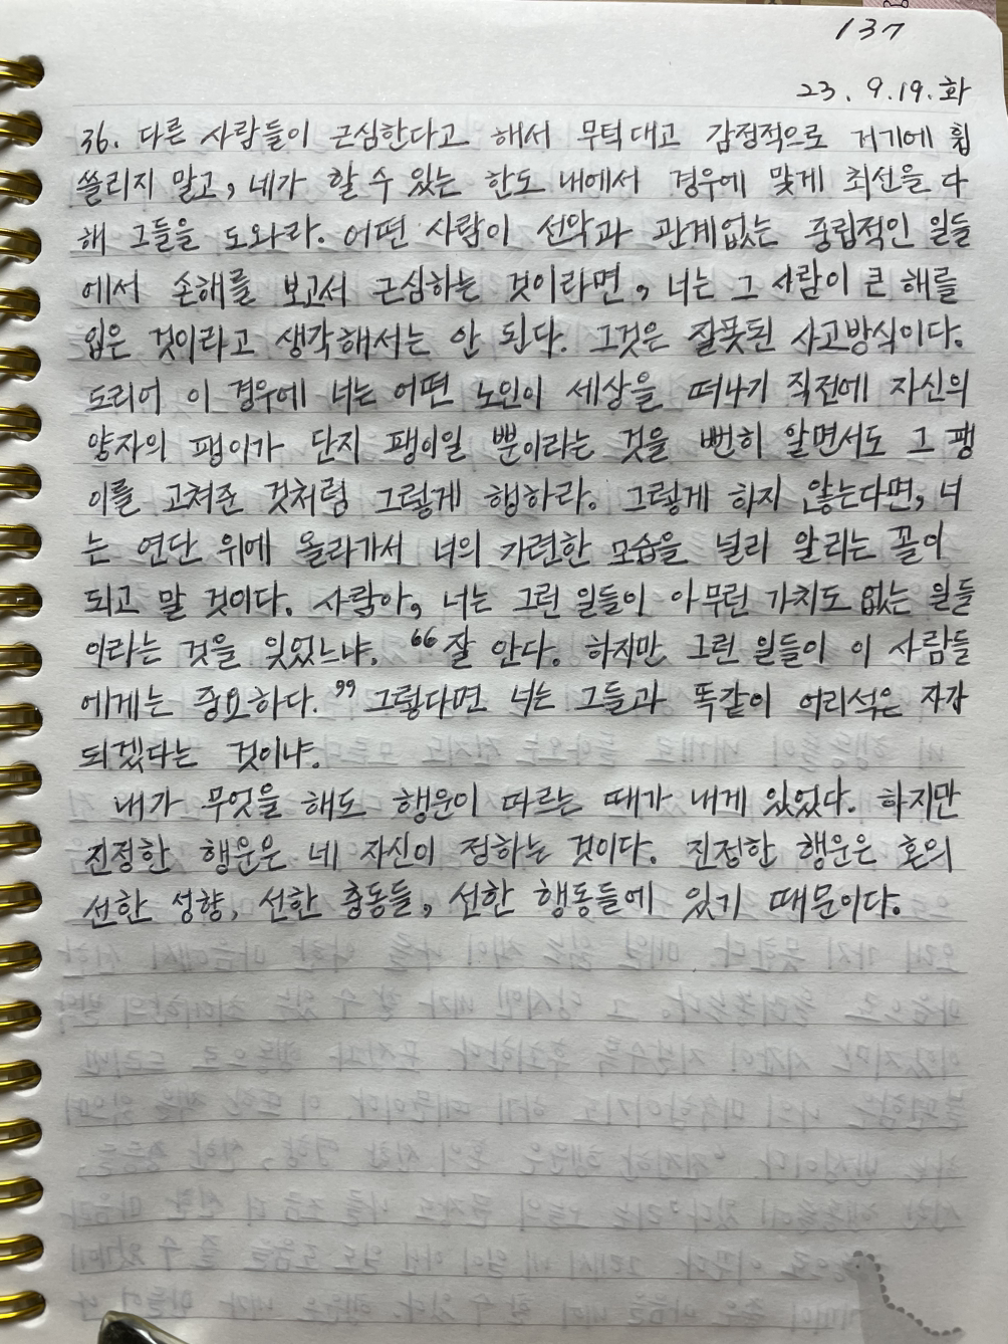 137
23. 9. 19. 화
36. 다른 사람들이 근심한다고 해서 무턱대고 감정적으로 거기에 휩
쓸리지 말고, 네가 할 수 있는 한도 내에서 경우에 맞게 최선을 다
해 그들을 도와라. 어떤 사람이 선악과 관계없는 중립적인 일들
에서 손해를 보고서 근심하는 것이라면, 너는 그 사람이 큰 해를
입은 것이라고 생각해서는 안 된다. 그것은 잘못된 사고방식이다.
도리어 이 경우에 너는 어떤 노인이 세상을 떠나기 직전에 자신의
양자의 팽이가 단지 팽이일 뿐이라는 것을 뻔히 알면서도 그 팽
이를 고쳐준 것처럼 그렇게 행하라. 그렇게 하지 않는다면, 너
는 연단 위에 올라가서 너의 가련한 모습을 널리 알리는 꼴이
되고 말 것이다. 사람아, 너는 그런 일들이 아무런 가치도 없는 일들
이라는 것을 잊었느냐. “잘 안다. 하지만 그런 일들이 이 사람들
에게는 중요하다.” 그렇다면 너는 그들과 똑같이 어리석은 자가
되겠다는 것이냐.
내가 무엇을 해도 행운이 따르는 때가 내게 있었다. 하지만
진정한 행운은 네 자신이 정하는 것이다. 진정한 행운은 혼의
선한 성향, 선한 충동들, 선한 행동들에 있기 때문이다.